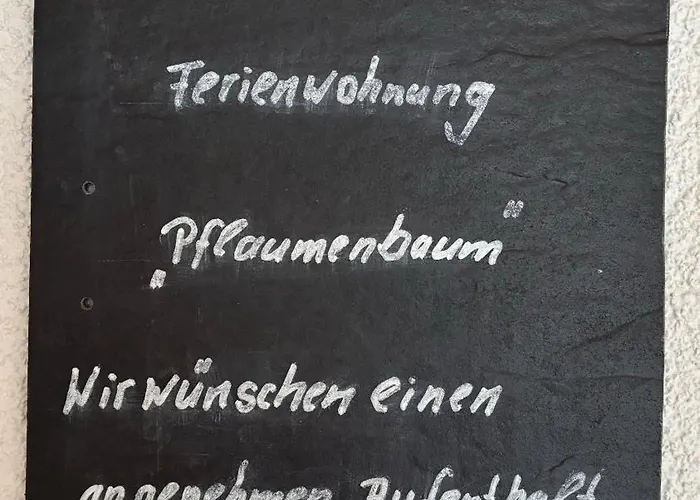 Ferienwohnung
„Pflaumenbaum“
Wir wünschen einen
angenehmen Aufenthalt